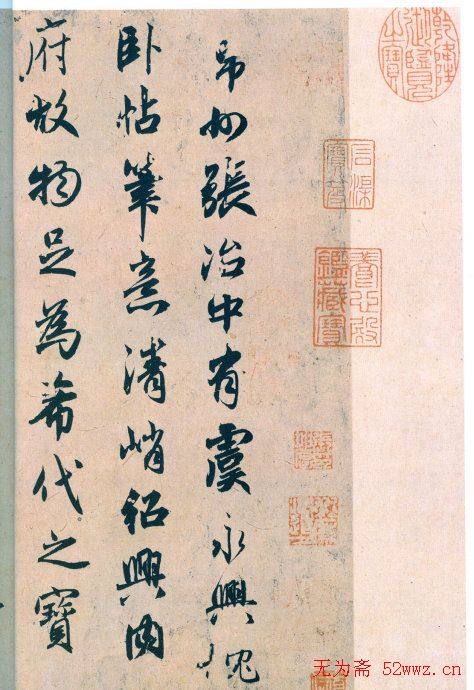 乾隆御覽之寶
石渠寶笈
養心殿鑑藏寶
州張治中有虞永興枕
卧帖筆意清峭紹興内
府故物足為希代之寶
无为斋 52wwz.cn